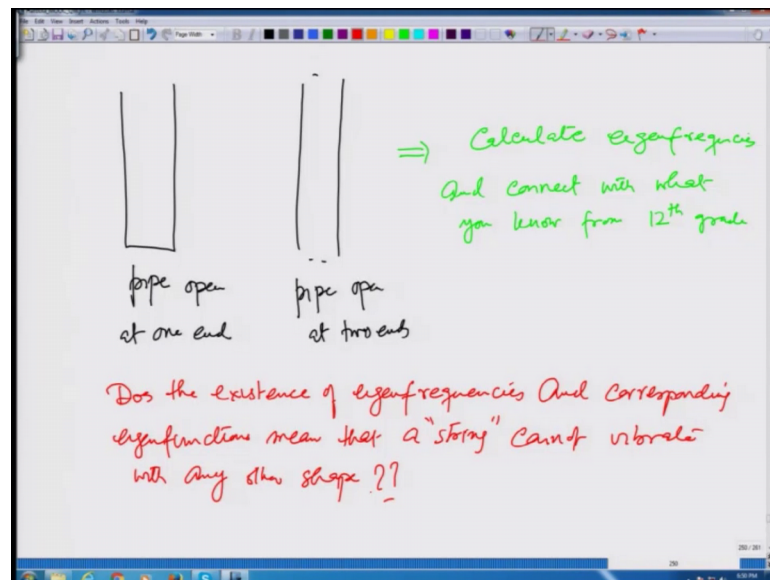 File Edit View Insert Actions Tools Help
Page Width
B I
⇒ Calculate eigenfrequencies
And connect with what
you know from 12th grade
pipe open
at one end
pipe open
at two ends
Does the existence of eigenfrequencies And corresponding
eigenfunctions mean that a "string" cannot vibrate
with any other shape ??
250 / 281
250